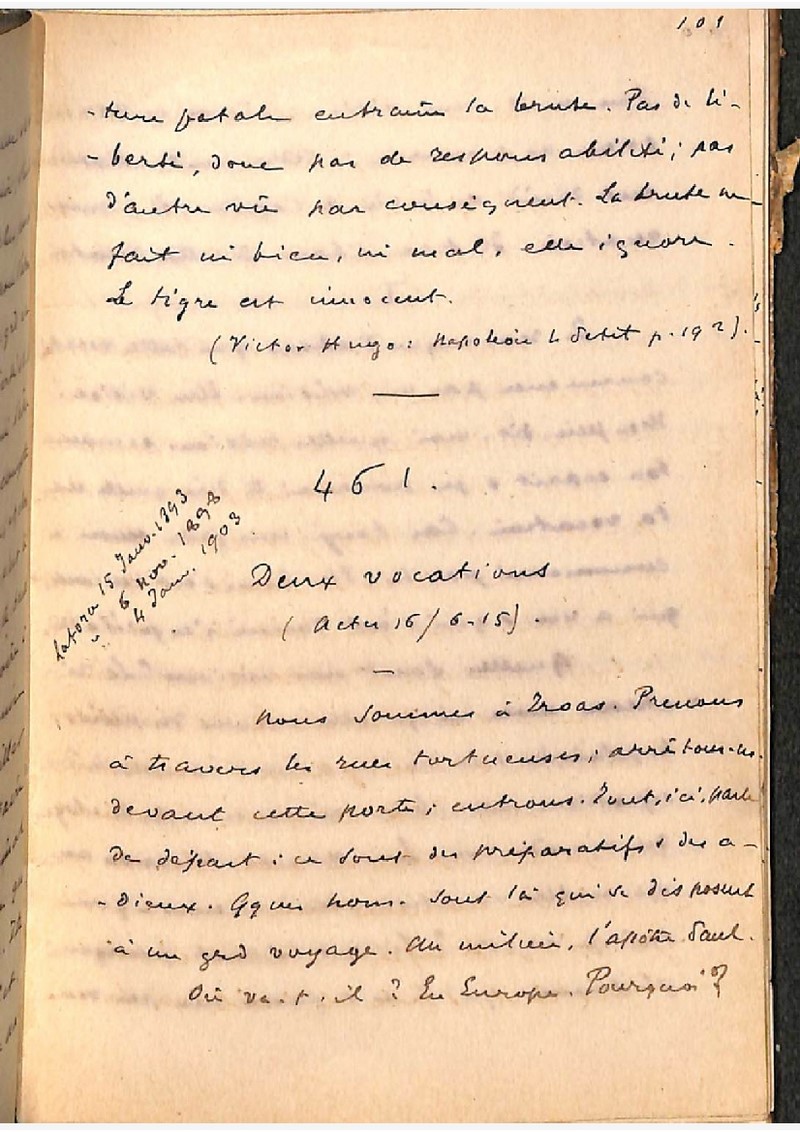 101
-ture fatale entraîne la brute. Pas de li-
-berté, donc pas de responsabilité; pas
d'autre vie par conséquent. La brute ne
fait ni bien, ni mal, elle ignore.
Le tigre est innocent.
(Victor Hugo: Napoléon le Petit p. 192).
461.
Latora 15 Janv. 1893
" 6 Nov. 1898
4 Janv. 1903
Deux vocations
(Actes 16/6-15).
Nous sommes à Troas. Prenons
à travers les rues tortueuses; arrêtons-ns
devant cette porte; entrons. Tout, ici, parle
de départ: ce sont des préparatifs & des a-
-dieux. Qques hom. sont là qui se disposent
à un grd voyage. Au milieu, l'apôtre Paul.
Où va-t-il? En Europe. Pourquoi?